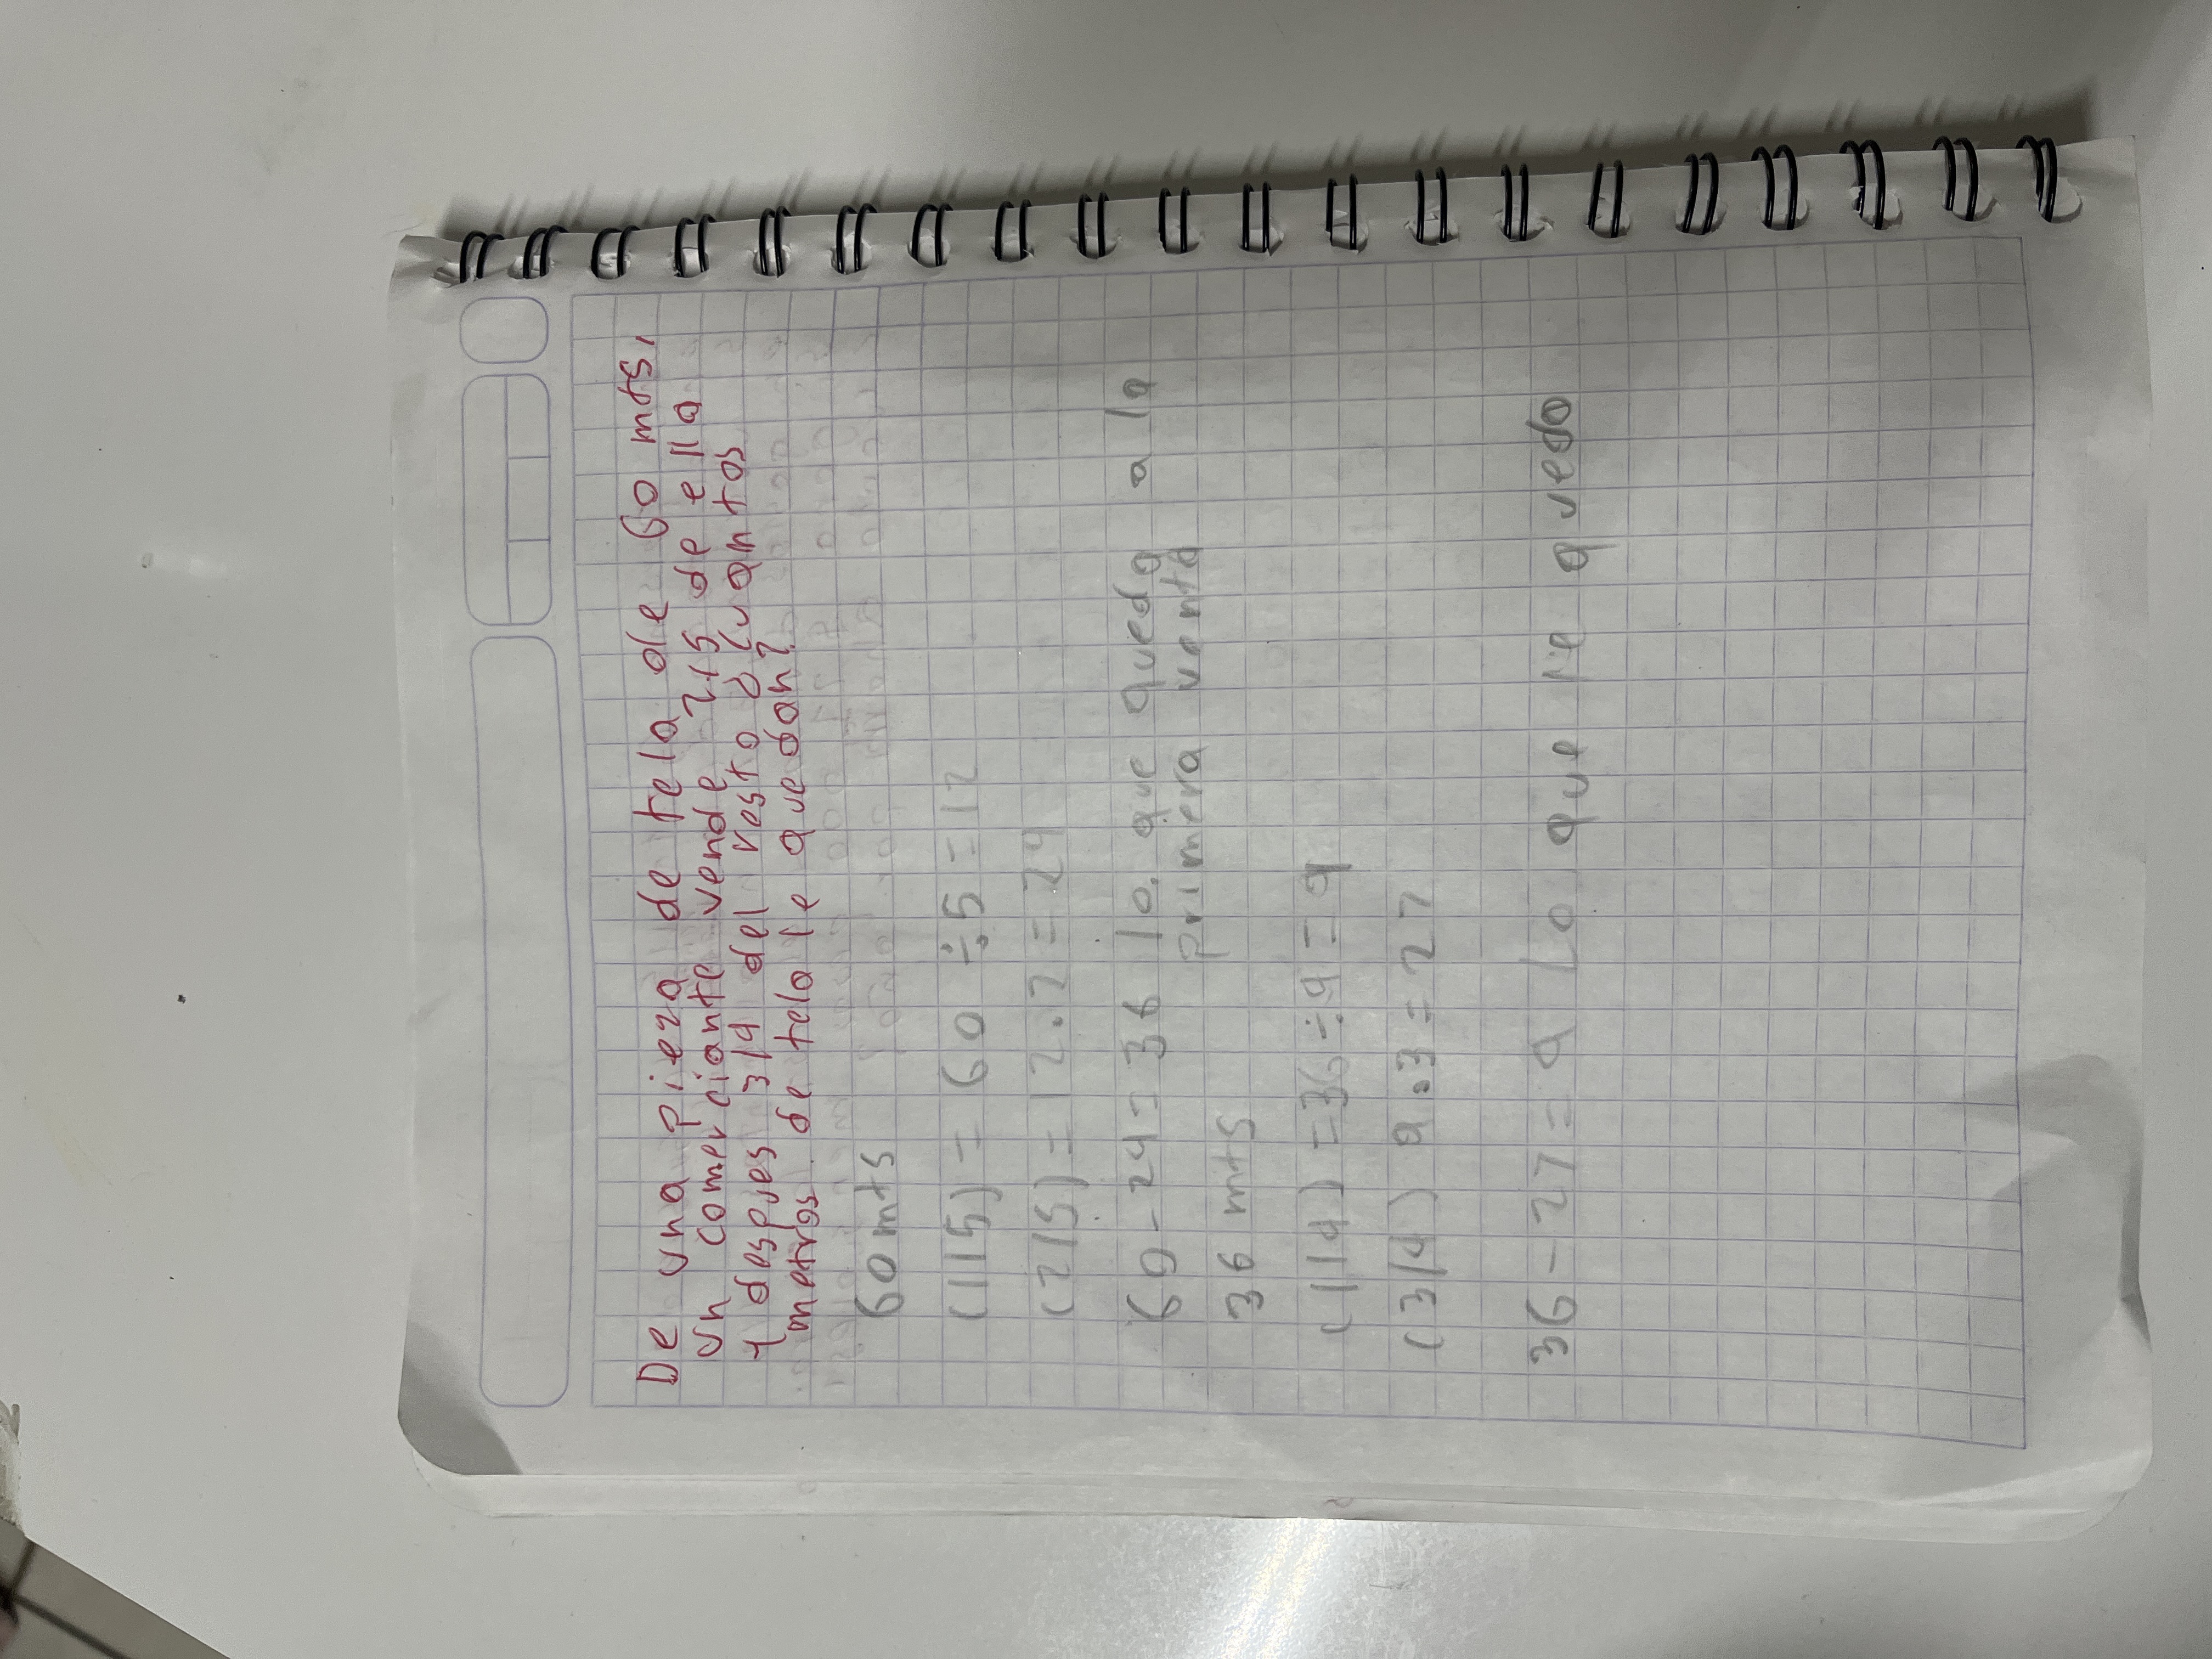 De una pieza de tela de 60 mts,
un comerciante vende 2/5 de ella
y despues 3/4 del resto ¿cuantos
metros de tela le quedan?
60 mts
(1/5) = 60 ÷ 5 = 12
(2/5) = 12.2 = 24
60 - 24 = 36 lo que quedo a la
primera venta
36 mts
(1/4) = 36 ÷ 4 = 9
(3/4) 9.3 = 27
36 - 27 = 9 Lo que le quedo